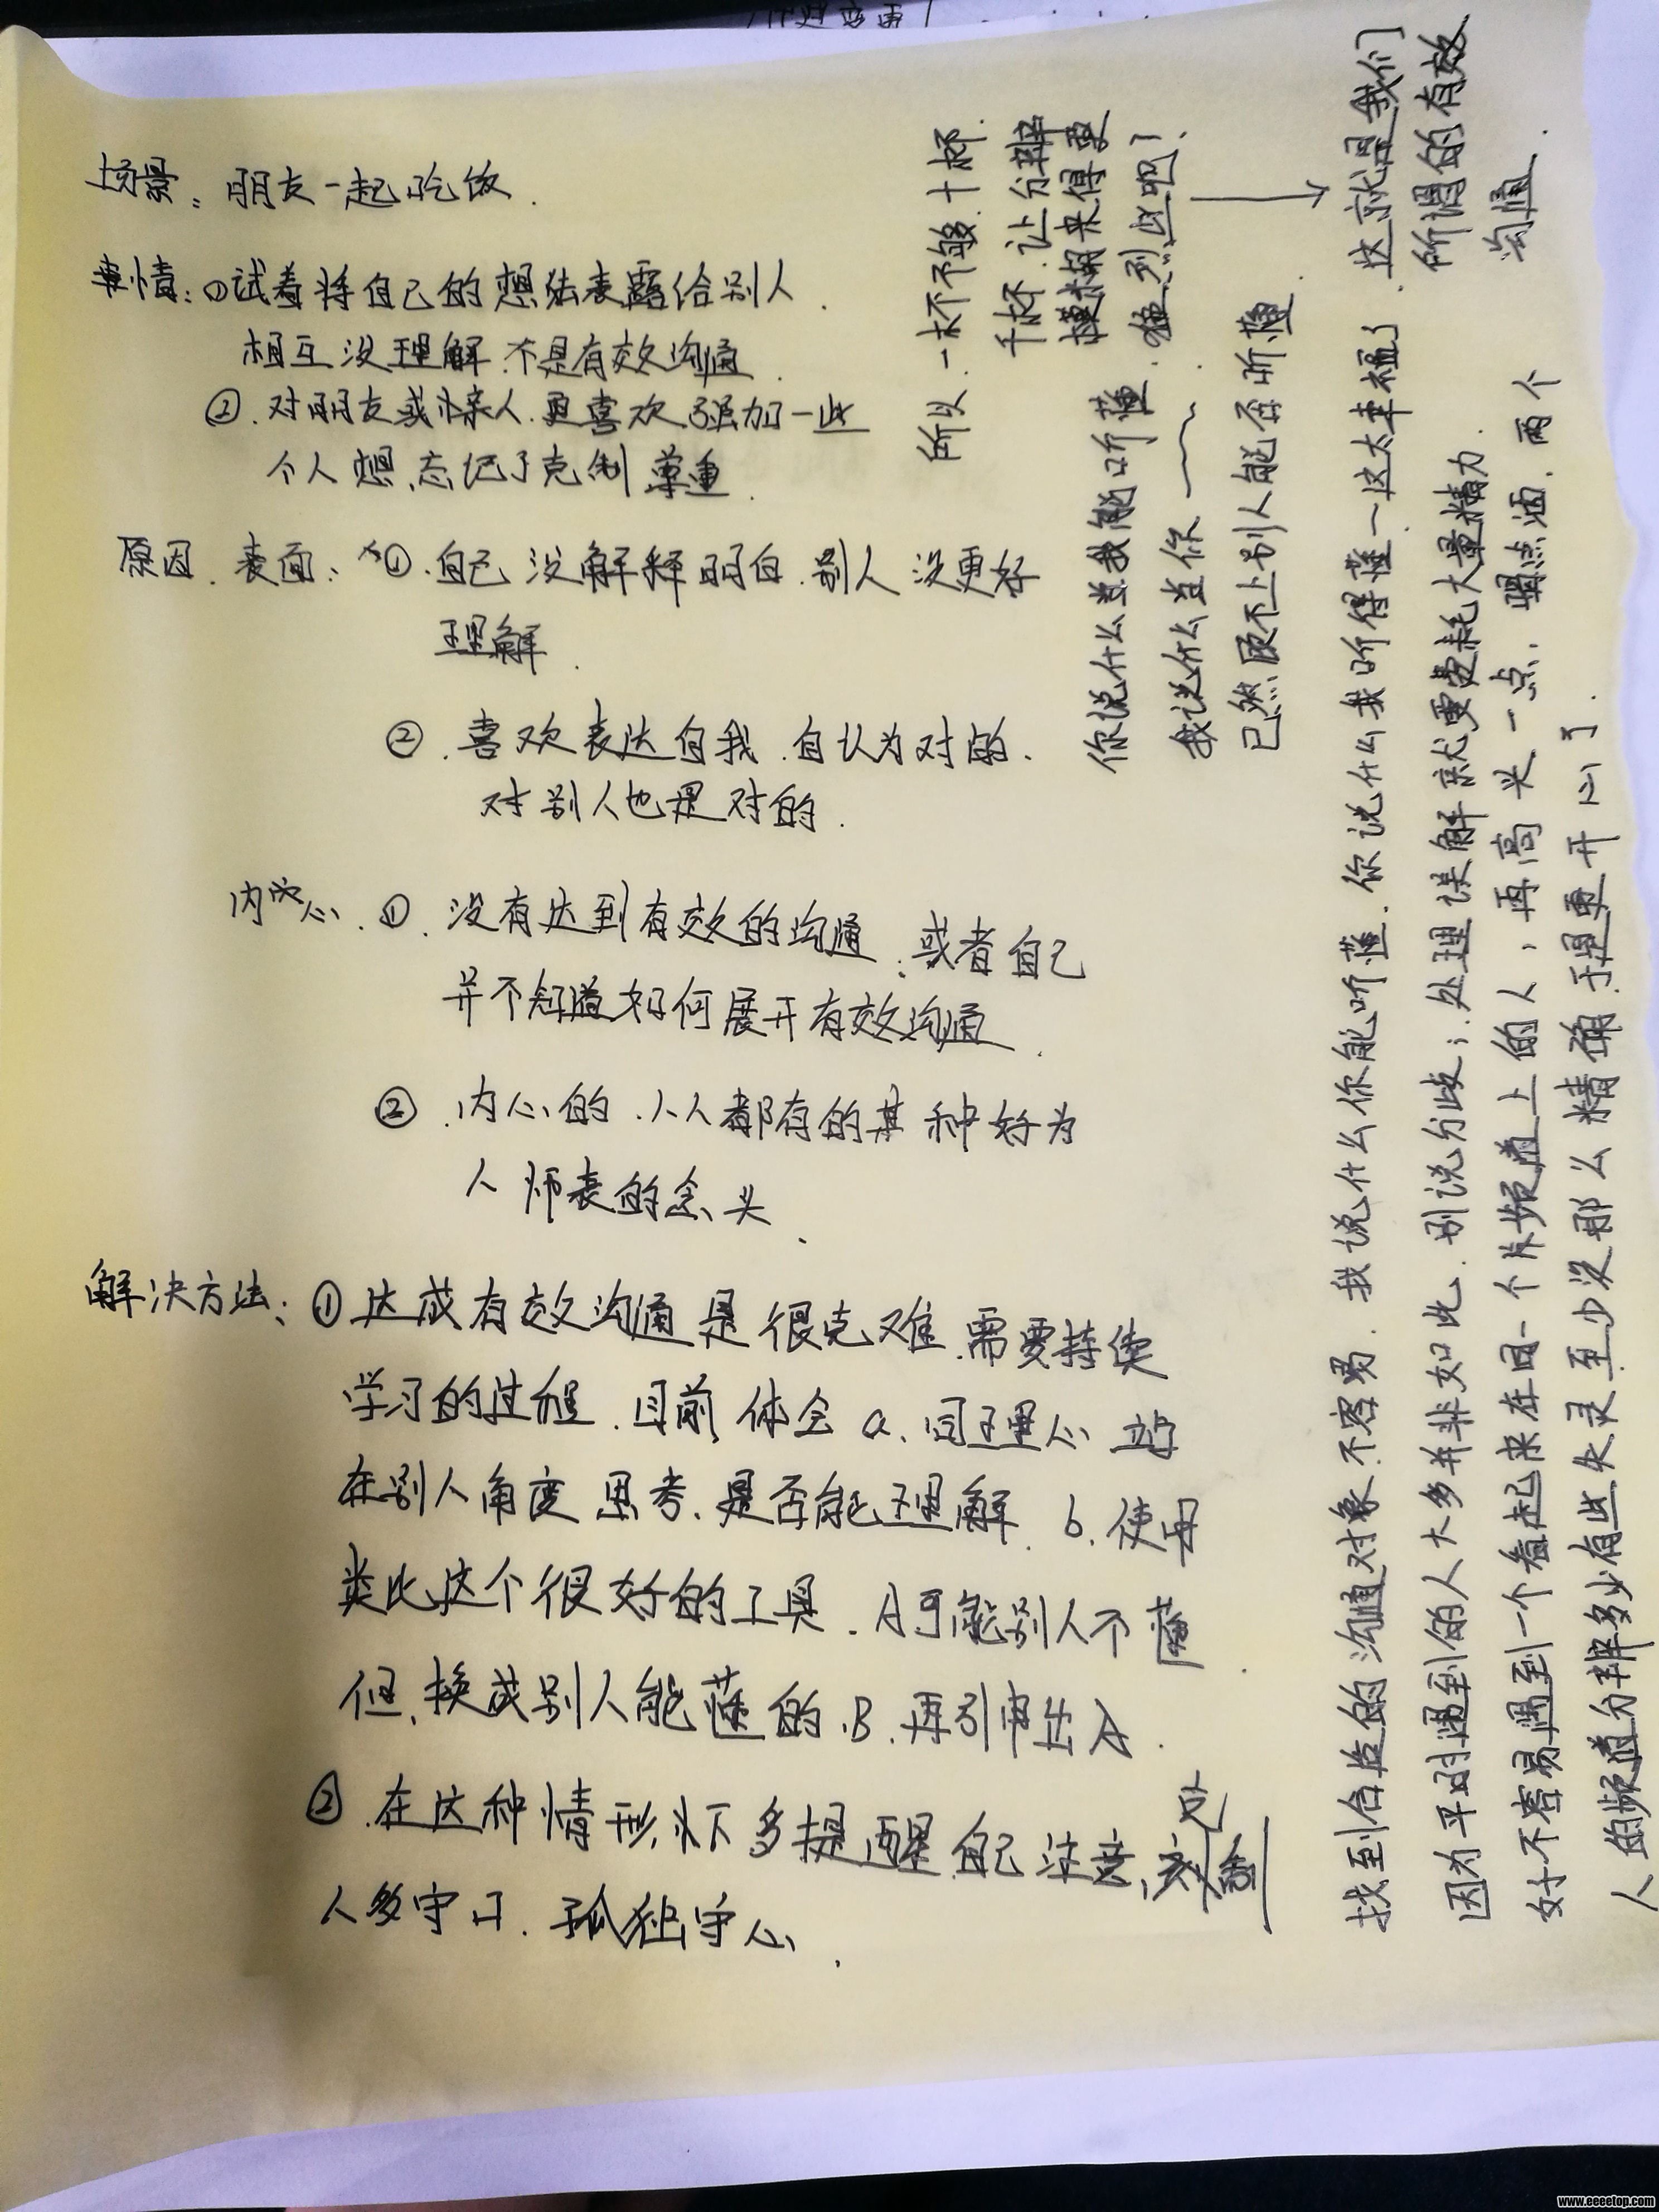 场景：朋友一起吃饭．
事情：①试着将自己的想法表露给别人．
相互没理解．不是有效沟通．
②．对朋友或亲人．更喜欢强加一些
个人想．忘记了克制 尊重．
原因．表面、①．自己没解释明白．别人没更好
理解．
②．喜欢表达自我．自认为对的．
对别人也是对的．
内心．①．没有达到有效的沟通．或者自己
并不知道如何展开有效沟通．
②．内心的．人人都有的某种好为
人师表的念头、
解决方法：①达成有效沟通是很克难．需要持续
学习的过程．目前体会 a．同理心 站
在别人角度思考．是否能理解．b．使用
类比这个很好的工具．A可能别人不懂．
但．换成别人能懂的．B．再引申出A．
②．在这种情形下多提醒自己注意，克制
人多守口．孤独守心．
找到合适的沟通对象．不容易．我说什么你能听懂．你说什么我听得懂一这太幸福了．
因为平时遇到的人大多并非如此．别说分歧；处理误解就要耗大量精力．
好不容易遇到一个看起来在同一个频道上的人，再高兴一点．喝点酒．两个
人的频道分辨多少有些失灵至少没那么精确．于是更开心了．
所以．一杯不够．十杯．
千杯．让分辨
模糊来得更
猛烈些吧！
你说什么当我能听懂．
我说什么当你
已然顾不上别人能否听懂．
→ 这就是我们
所谓的有效
沟通．
www.eeeetop.com